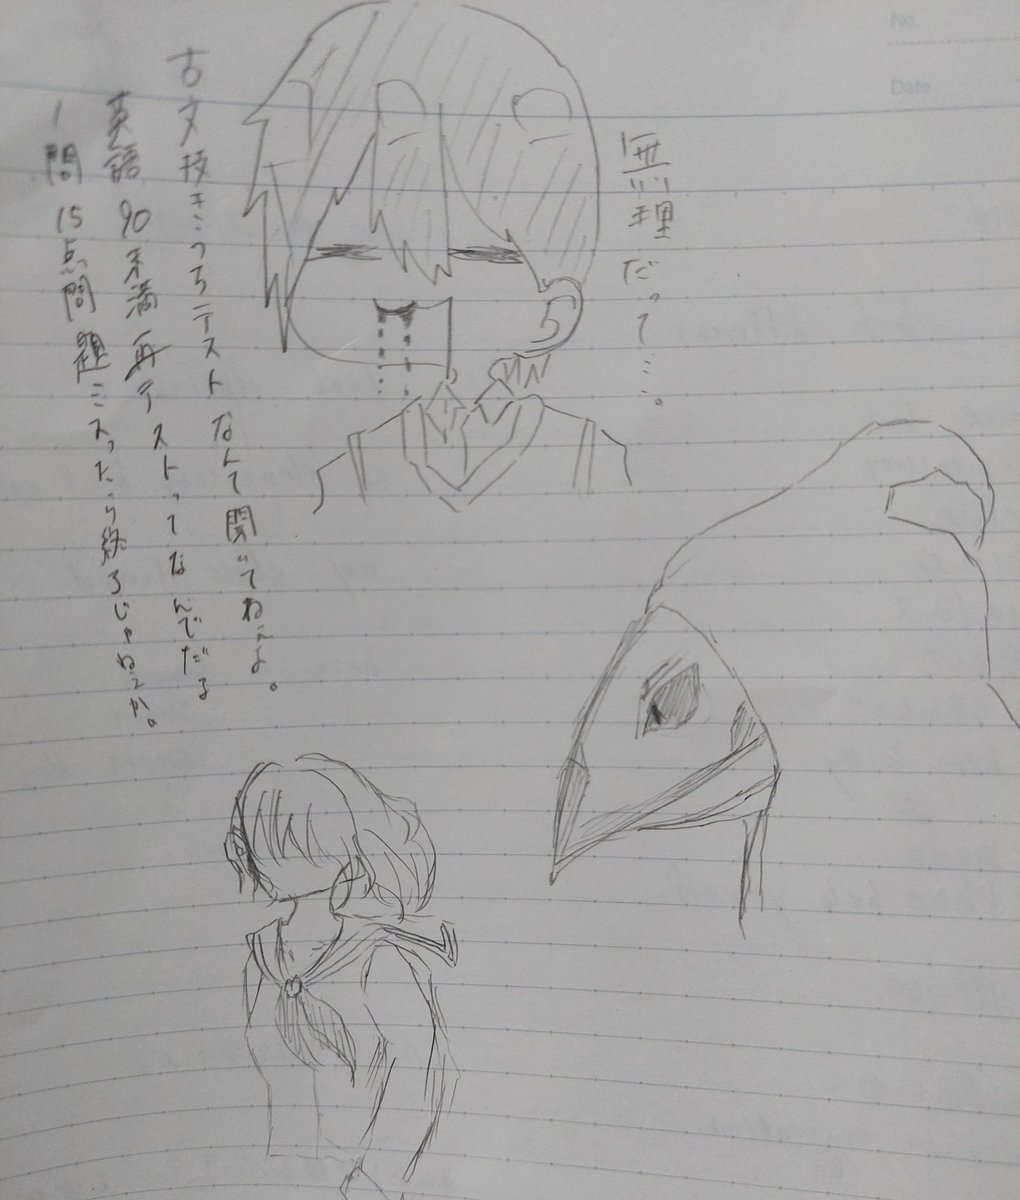 No.
Date
無理だって…。
古文抜きうちテストなんて聞いてねぇよ。
英語90未満再テストってなんでだる
1問15点問題ミスったら終ろじゃねぇか。